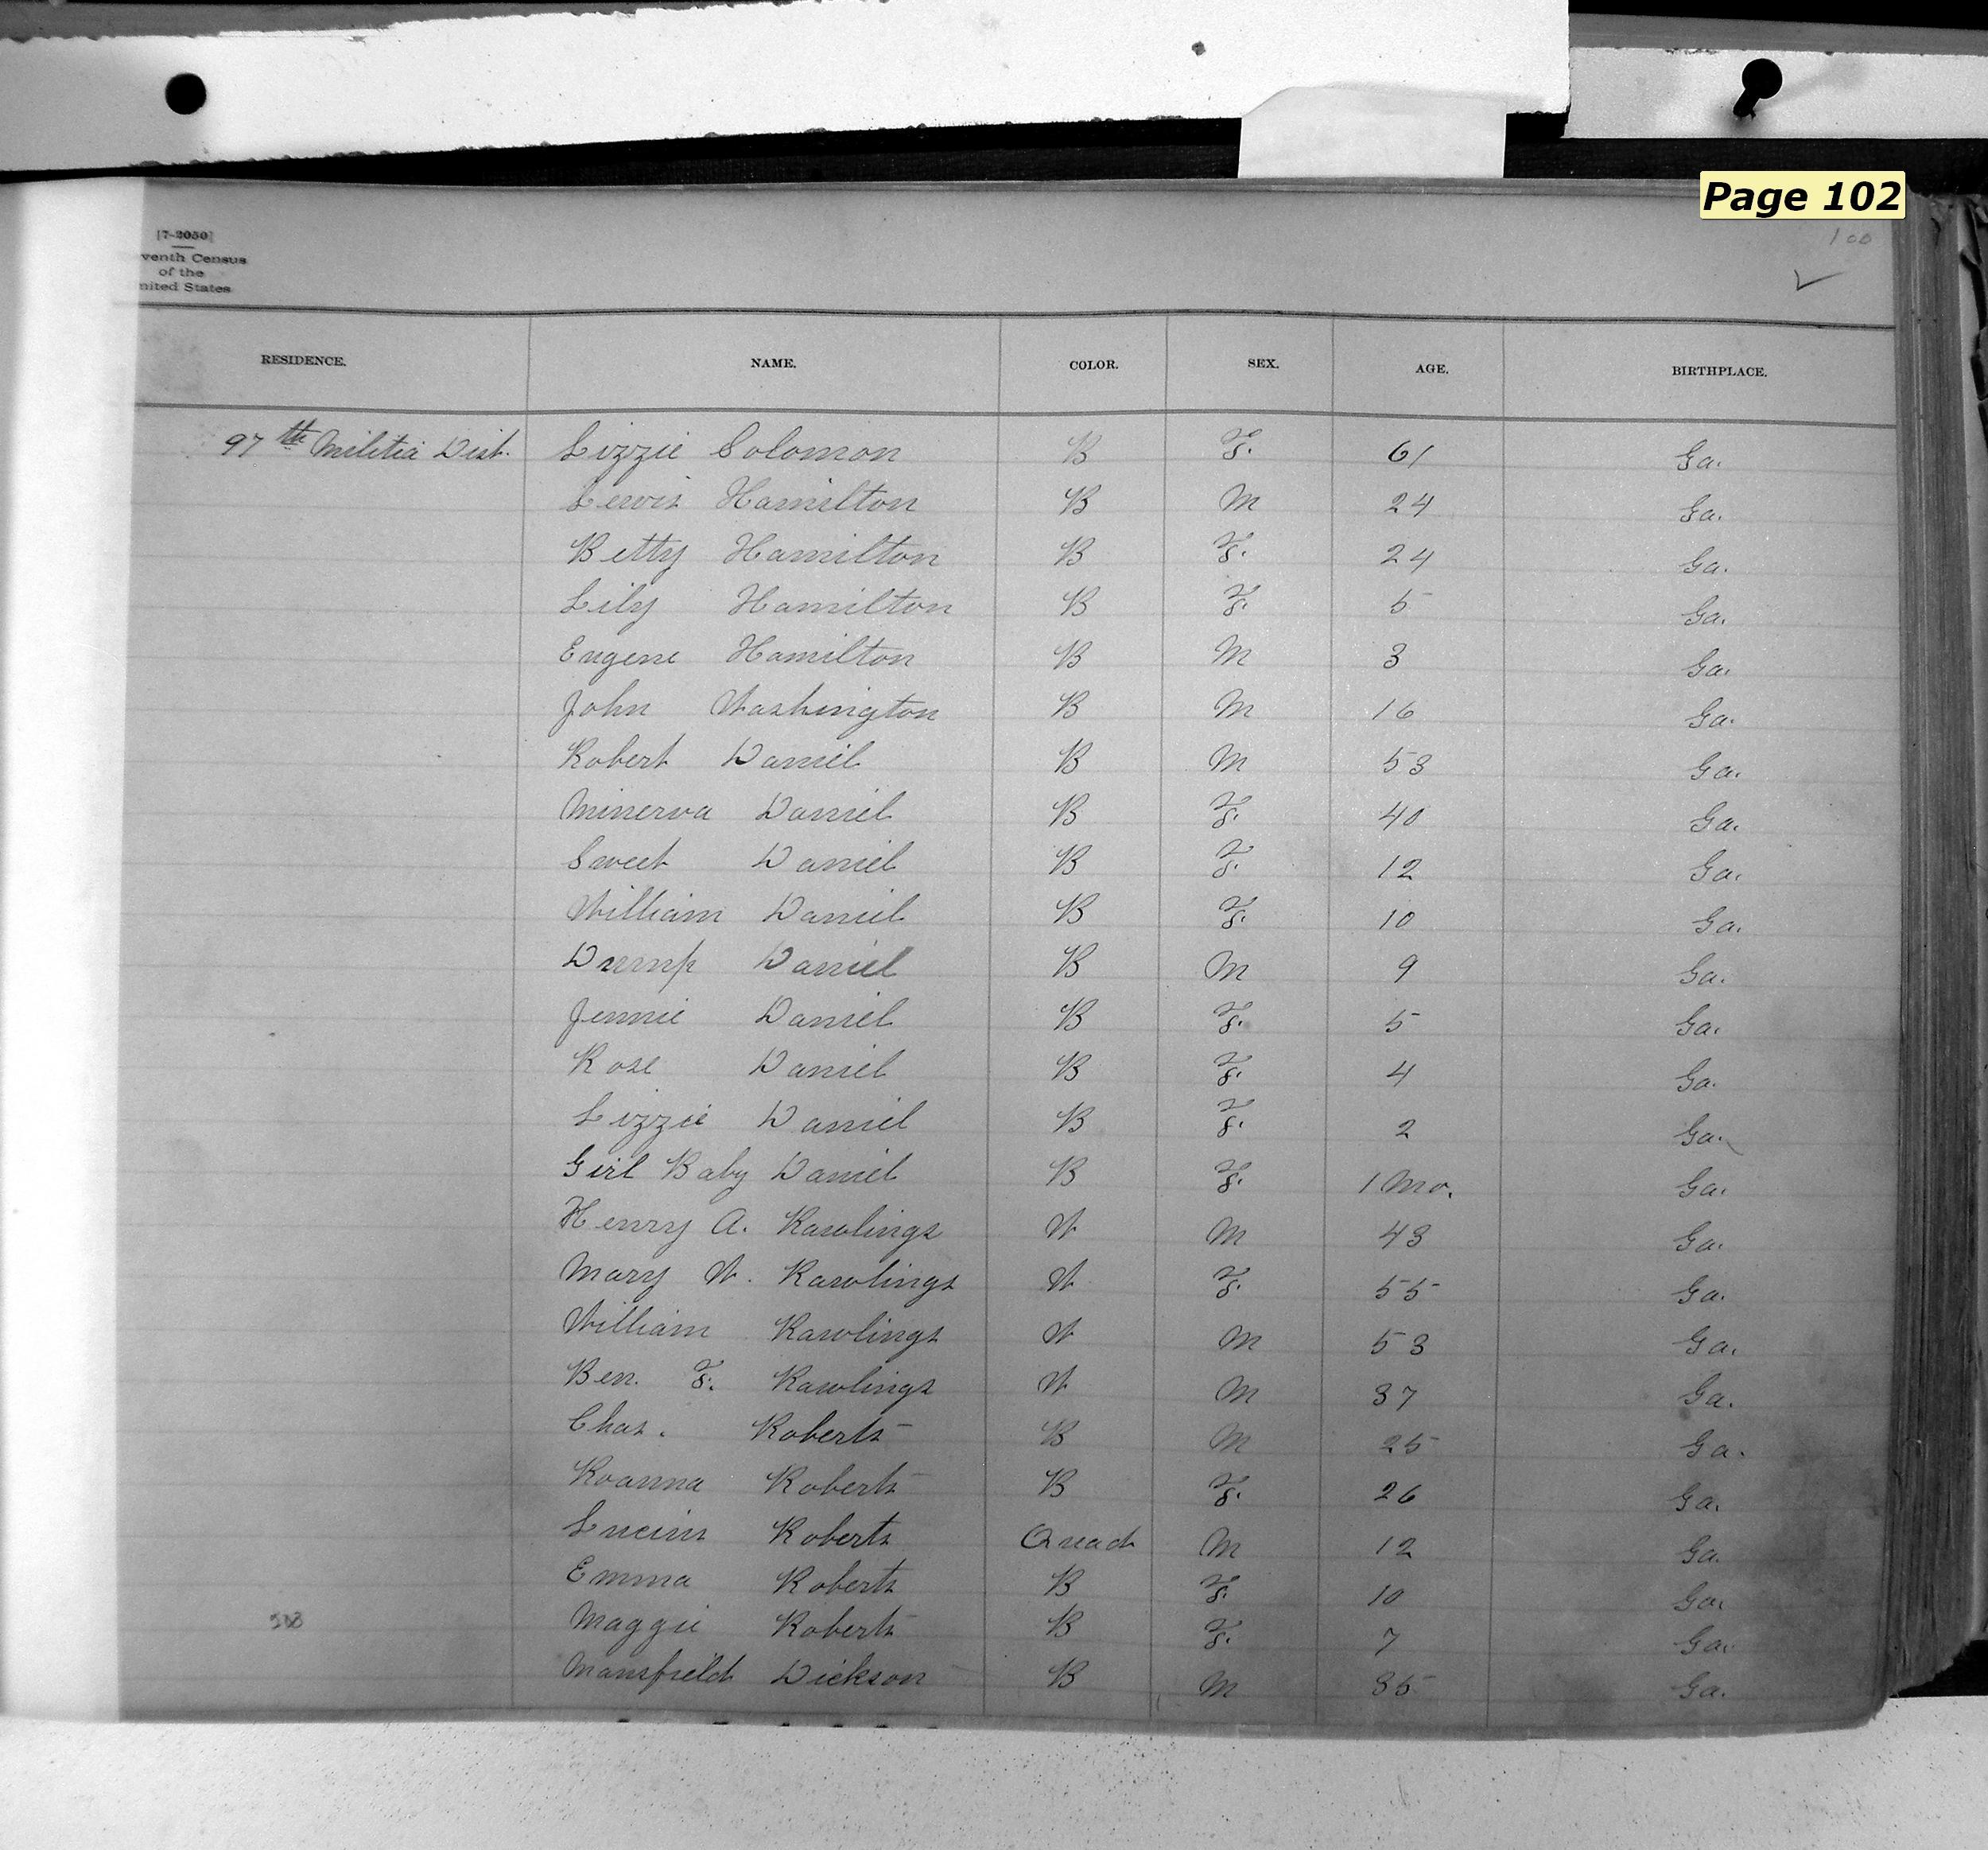 Page 102
100
[7-2050]
venth Census
of the
nited States
RESIDENCE. NAME. COLOR. SEX. AGE. BIRTHPLACE.
97th Militia Dist. Lizzie Solomon B F. 61 Ga.
Lewis Hamilton B M 24 Ga.
Betty Hamilton B F. 24 Ga.
Lily Hamilton B F. 5 Ga.
Eugene Hamilton B M 3 Ga.
John Washington B M 16 Ga.
Robert Daniel B M 53 Ga.
Minerva Daniel B F. 40 Ga.
Sweet Daniel B F. 12 Ga.
William Daniel B F. 10 Ga.
Dump Daniel B M 9 Ga.
Jennie Daniel B F. 5 Ga.
Rose Daniel B F. 4 Ga.
Lizzie Daniel B F. 2 Ga.
Girl Baby Daniel B F. 1 Mo. Ga.
Henry A. Rawlings W M 43 Ga.
Mary W. Rawlings W F. 55 Ga.
William Rawlings W M 53 Ga.
Ben. F. Rawlings W M 37 Ga.
Chas. Roberts B M 25 Ga.
Roanna Roberts B F. 26 Ga.
Roberts Quad M 12 Ga.
Emma Roberts B F. 10 Ga.
Maggie Roberts B F. 7 Ga.
Mansfield Dickson B M 35 Ga.